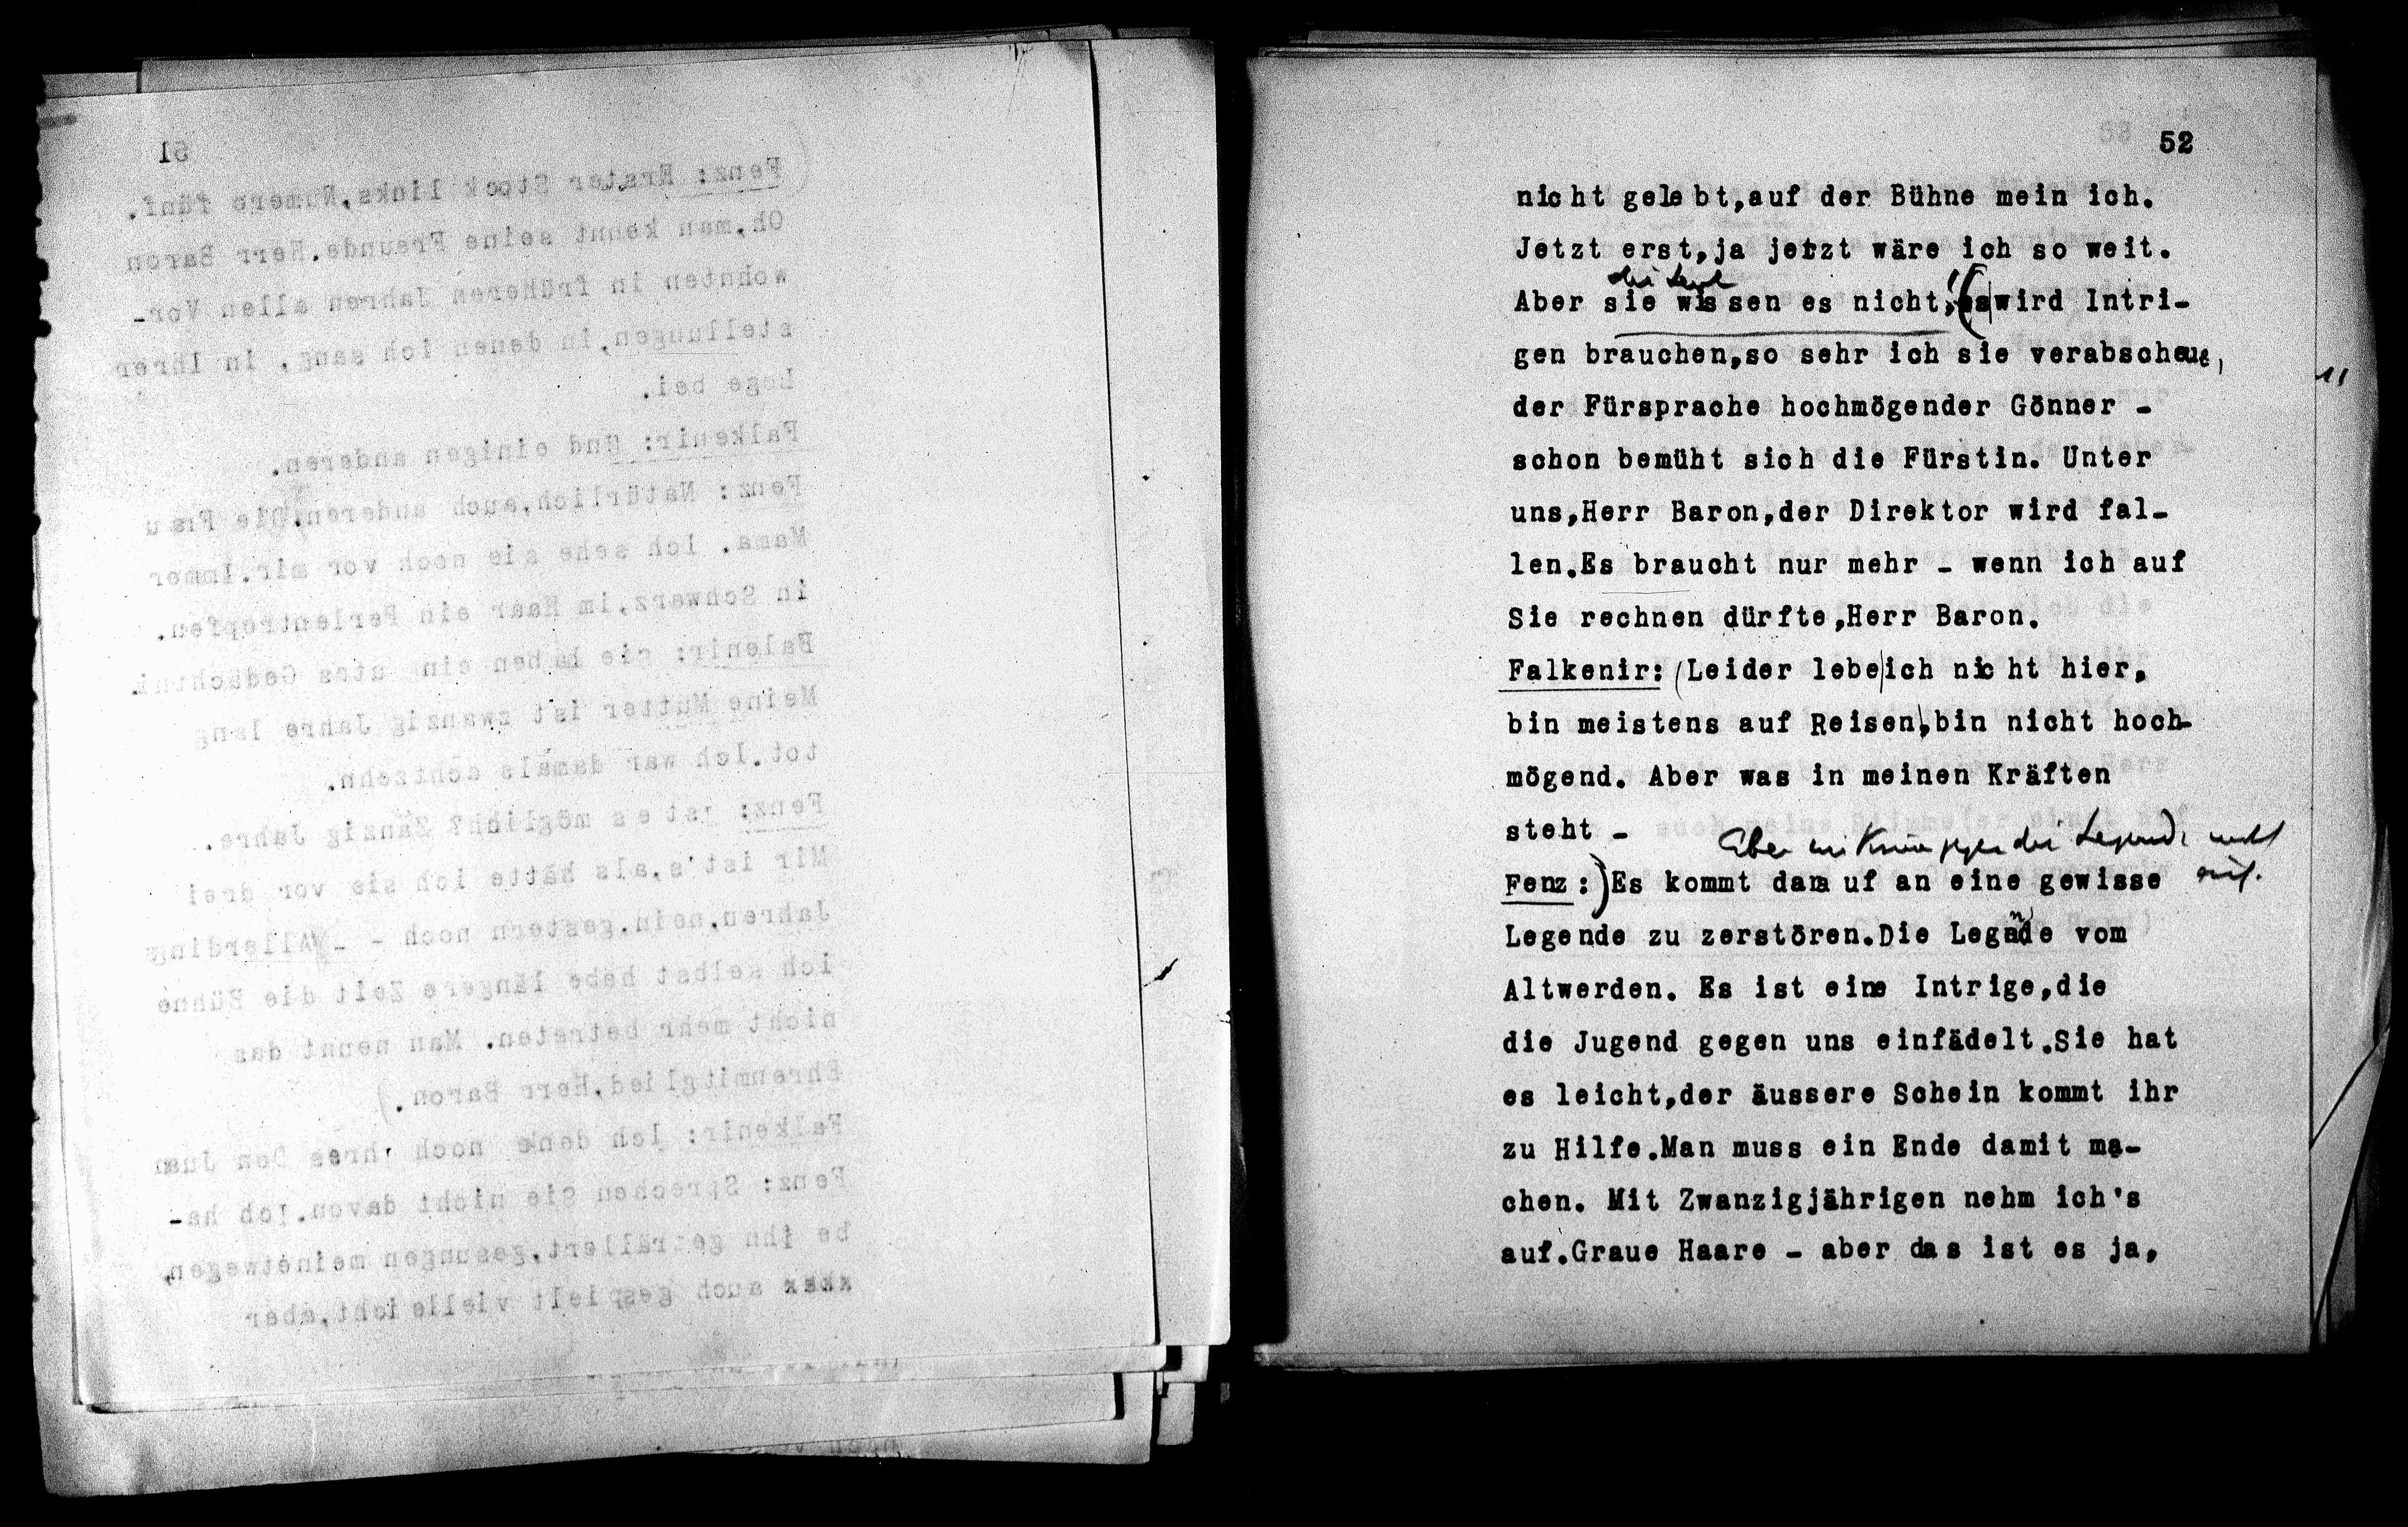 52
nicht gelebt,auf der Bühne mein ich.
Jetzt erst,ja jetzt wäre ich so weit.
die Leute
Aber sie wissen es nicht! (es wird Intri-
gen brauchen,so sehr ich sie verabscheue,
der Fürsprache hochmögender Gönner -
schon bemüht sich die Fürstin. Unter
uns,Herr Baron,der Direktor wird fal-
len.Es braucht nur mehr - wenn ich auf
Sie rechnen dürfte,Herr Baron.
Falkenir: (Leider lebe ich nicht hier,
bin meistens auf Reisen,bin nicht hoch-
mögend. Aber was in meinen Kräften
steht -
Aber die Legende
Fenz:) Es kommt darauf an eine gewisse
Legende zu zerstören.Die Legende vom
Altwerden. Es ist eine Intrige,die
die Jugend gegen uns einfädelt.Sie hat
es leicht,der äussere Schein kommt ihr
zu Hilfe.Man muss ein Ende damit ma-
chen. Mit Zwanzigjährigen nehm ich's
auf.Graue Haare - aber das ist es ja,
51
Fenz: Erster Stock links,Numero fünf.
Oh,man kennt seine Freunde.Herr Baron
wohnten in früheren Jahren allen Vor-
stellungen,in denen ich sang, in Ihrer
Loge bei.
Falkenir: Und einigen anderen.
Fenz: Natürlich,auch anderen.Die Frau
Mama. Ich sehe sie noch vor mir.Immer
in Schwarz,im Haar ein Perlentropfen.
Falenir: Sie haben ein utes Gedächtni.
Meine Mutter ist zwanzig Jahre lang
tot.Ich war damals achtzehn.
Fenz: Ist es möglich? Zanzig Jahre.
Mir ist's,als hätte ich sie vor drei
Jahren,nein,gestern noch - - Allerdings
ich selbst habe längere Zeit die Bühne
nicht mehr betreten. Man nennt das
Ehrenmitglied,Herr Baron.)
Falkenir: Ich denke noch Ihres Don Juan
Fenz: Sprechen Sie nicht davon.Ich ha-
be ihn geträllert,gesungen meinetwegen,
auch gespielt vielleicht,aber